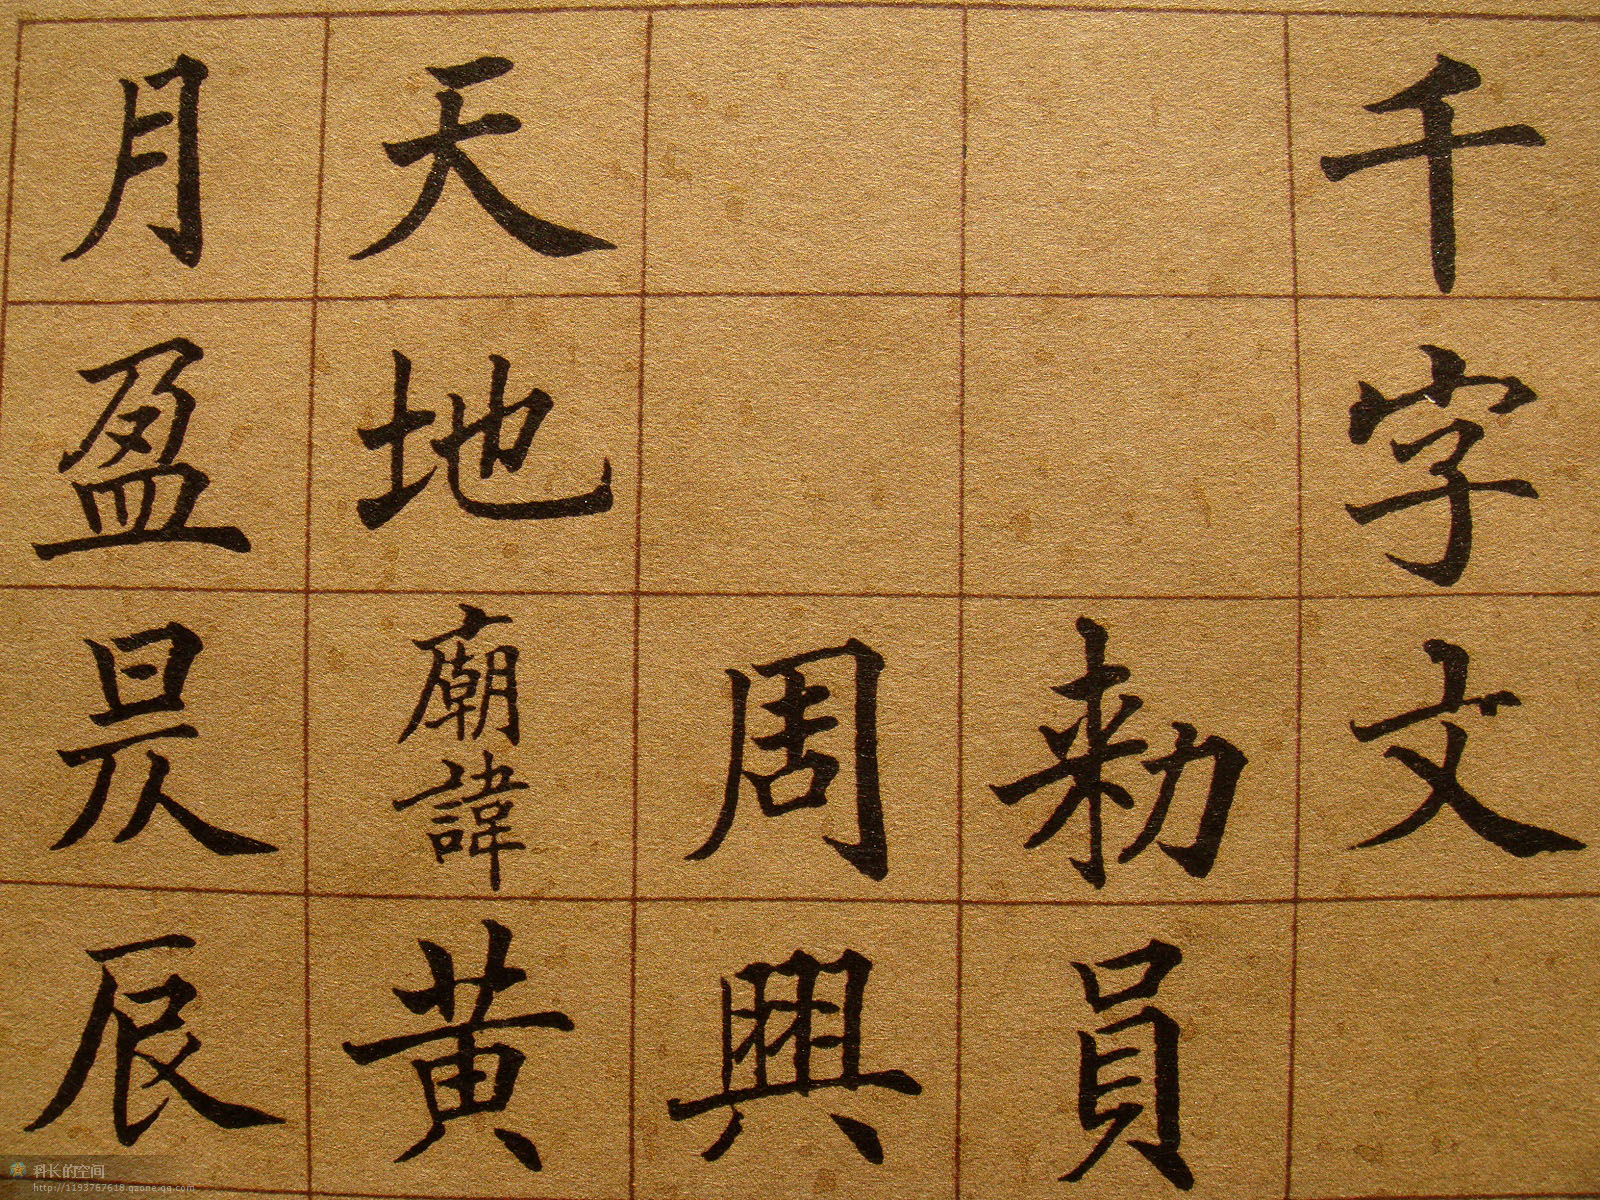 千字文
勑員
周興
天地廟諱黄
月盈昃辰
科长的空间
http://1193767618.qzone.qq.com